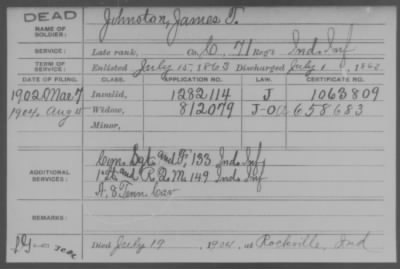 DEAD
NAME OF SOLDIER: Johnston, James T.
SERVICE: Late rank, Co. C. 71 Reg't Ind. Inf
TERM OF SERVICE: Enlisted July 15, 1863 Discharged July 1, 186
DATE OF FILING. CLASS. APPLICATION NO. LAW. CERTIFICATE NO.
1902 Mar 7 Invalid, 1282114 J 1063809
1904. Aug Widow, 812079 J-O 658683
Minor,
ADDITIONAL SERVICES: Com. Sgt. and F, 133 Ind. Inf
1st Lt. and R. Q. M. 149 Ind. Inf
A. 8 Tenn. Cav
REMARKS:
Died July 19, 1904, at Rockville, Ind